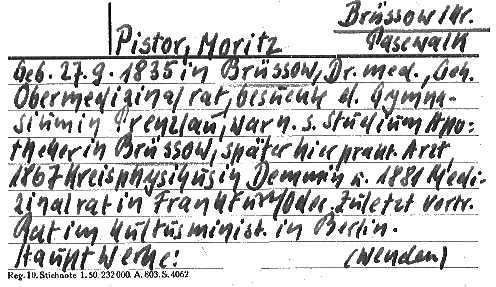 Brüssow Kr.
Pasewalk
Pistor, Moritz
Geb. 27.9.1835 in Brüssow, Dr. med., Geh.
Obermedizinalrat, besuchte d. Gymna-
sium in Prenzlau, war n. s. Studium Apo-
theker in Brüssow, später hier prakt. Arzt,
1867 Kreisphysikus in Demmin u. 1881 Medi-
zinalrat in Frankfurt/Oder. Zuletzt vortr.
Rat im Kultusminist. in Berlin.
Hauptwerke: (wenden)
Reg. 10. Stichnote 1. 50. 232000. A. 803. S. 4062